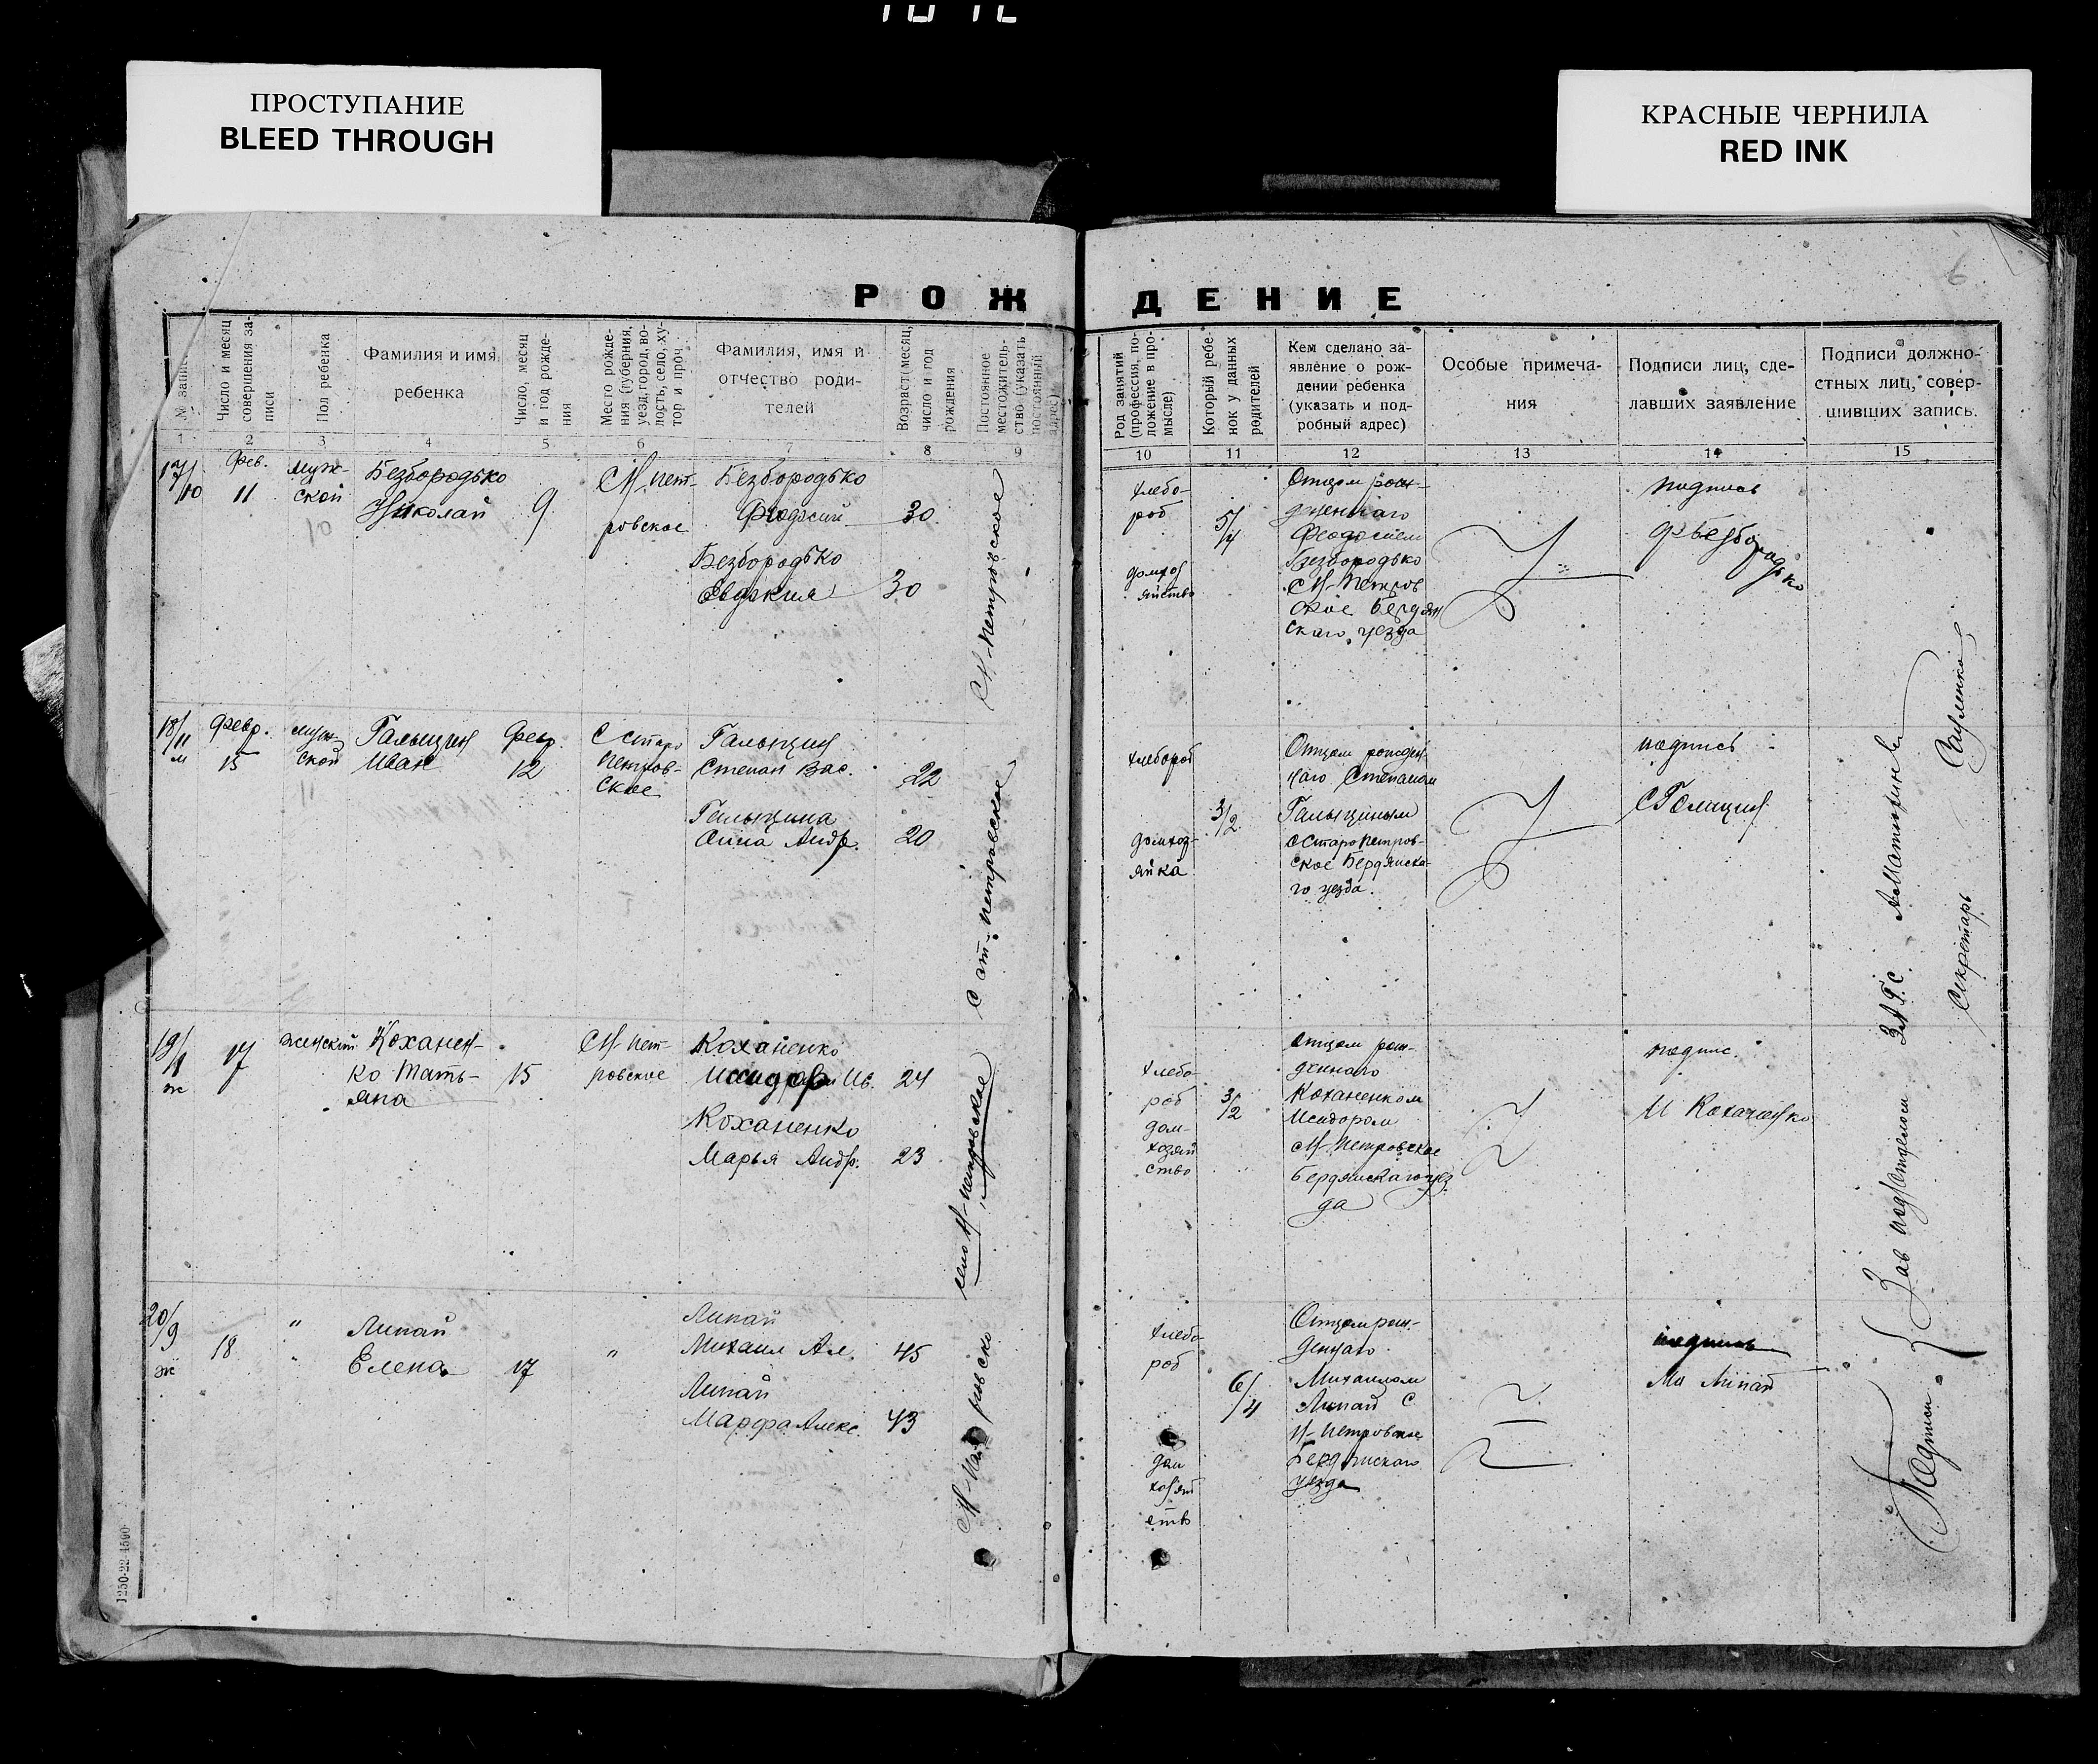 ПРОСТУПАНИЕ
BLEED THROUGH
КРАСНЫЕ ЧЕРНИЛА
RED INK
6
РОЖДЕНИЕ
№ записи
Число и месяц
совершения за-
писи
Пол ребенка
Фамилия и имя
ребенка
Число, месяц
и год рожде-
ния
Место рожде-
ния (губерния,
уезд, город, во-
лость, село, ху-
тор и проч.
Фамилия, имя и
отчество роди-
телей
Возраст (месяц,
число и год
рождения
Постоянное
местожитель-
ство (указать
постоянный
адрес)
Род занятий
(профессия, по-
ложение в про-
мысле)
Который ребе-
нок у данных
родителей
Кем сделано за-
явление о рож-
дении ребенка
(указать и под-
робный адрес)
Особые примеча-
ния
Подписи лиц, сде-
лавших заявление
Подписи должно-
стных лиц, совер-
шивших запись.
1 2 3 4 5 6 7 8 9 10 11 12 13 14 15
17/10
Фев.
11
муж-
ской
10
Безбородько
Николай
9
С Н-пет-
ровское
Безбородько
Феодосий 30
Безбородько
Евдокия 30
С Н-петровское
хлебо-
роб
домхоз
яйство
5/4
Отцом рож-
денного
Феодосием
Безбородько
С Н-Петров
ское Бердян
скаго уезда
подпись
Ф Безбородько
18/11
м
Февр.
15
муж-
ской
11
Галыцин
Иван
Февр.
12
С старо
Петров-
ское
Галыцин
Степан Вас. 22
Галыцина
Анна Андр. 20
С ст-петровское
хлебороб
домхоз-
яйка
3/2
Отцом рожден
наго Степаном
Галыциным
С Старопетров-
ское Бердянска-
го уезда.
подпись
С Голицин
19/8
ж
17
женский
Коханен-
ко Тать-
яна
15
С Н-пет-
ровское
Коханенко
Исидор Ив. 24
Коханенко
Марья Андр. 23
село Н-петровское
хлебо-
роб
дом-
хозяй
ство
3/2
Отцом рож-
деннаго
Коханенком
Исидором
С Н-Петровское
Бердянскаго уез
да
подпис.
И Коханенко
20/9
ж
18
"
Липай
Елена
17
"
Липай
Михаил Ал. 45
Липай
Марфа Алекс. 43
хлебо-
роб
дом
хозяй
ств
6/4
Отцом рож-
деннаго
Михаилом
Липай С
Н-Петровское
Бердянскаго
уезда
подпись
Ми Липай
Подписи
Зав подотделом ЗАГС.
Секретарь
1250-22-4590